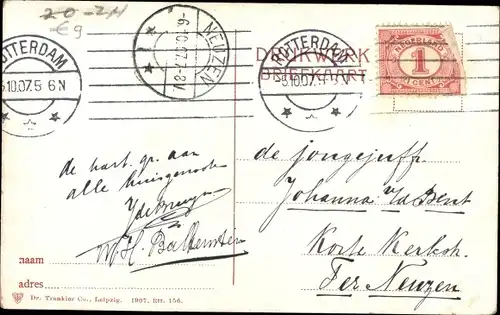 20-ZH
€9
ROTTERDAM
5.10.07. 5 6 N
NEUZEN
6.10.07. 7-8V
ROTTERDAM
5.10.07.
DRUKWERK
BRIEFKAART
NEDERLAND
1
CENT
de hart. gr. aan
alle huisgenoten
de jongejuffr.
Johanna v/d Bent
Korte Kerkstr.
Ter Neuzen
naam
adres
Dr. Trenkler Co., Leipzig. 1907. Stt. 156.